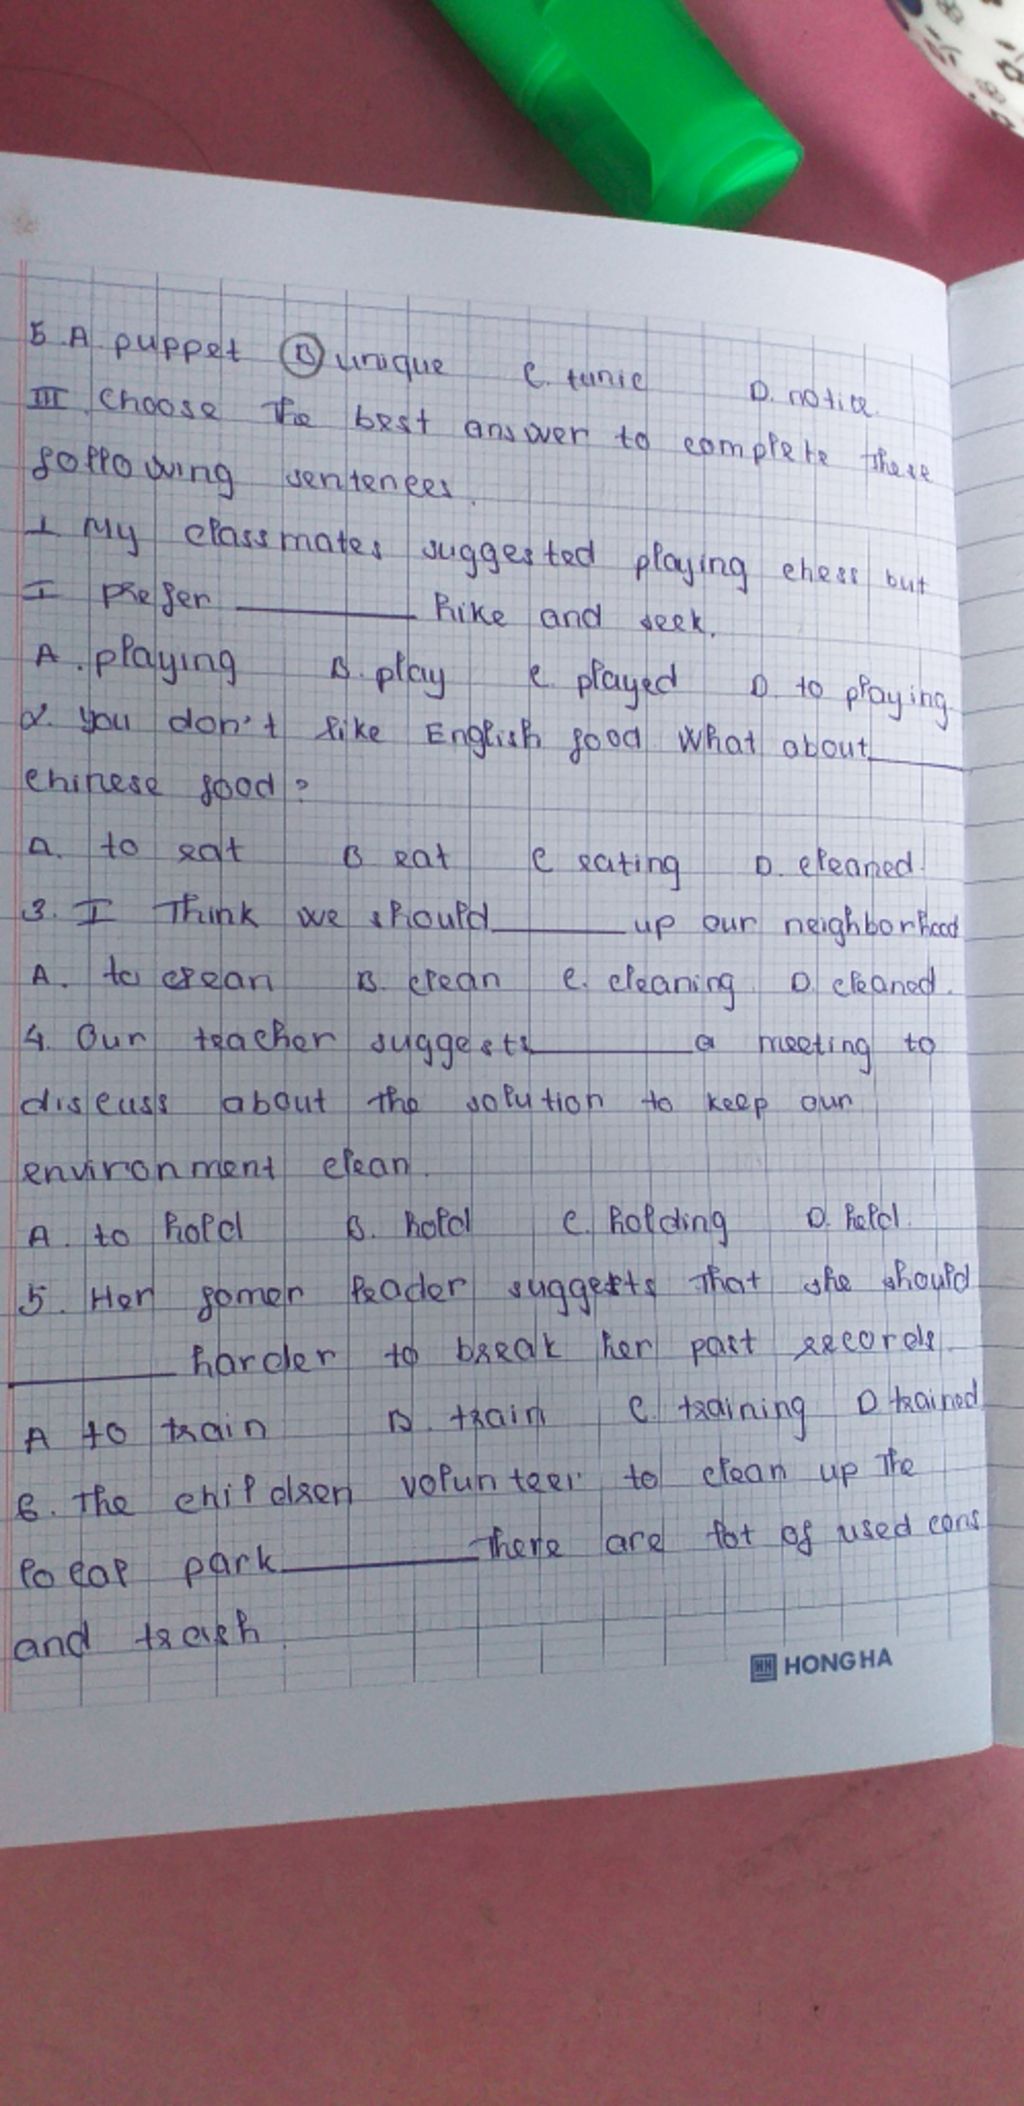 5. A. puppet B. unique C. tunic D. notice.
III. Choose the best answer to complete these
following sentences.
1. My classmates suggested playing chess but
I prefer ________ hike and seek.
A. playing B. play C. played D. to playing
2. You don't like English food. What about ________
Chinese food?
A. to eat B. eat C. eating D. cleaned.
3. I think we should ________ up our neighborhood
A. to clean B. clean C. cleaning D. cleaned.
4. Our teacher suggests ________ a meeting to
discuss about the solution to keep our
environment clean.
A. to hold B. hold C. holding D. held.
5. Her leader suggests that she should
________ harder to break her past records.
A. to train B. train C. training D. trained
6. The children volunteer to clean up the
local park ________ there are lot of used cans
and trash.
HH HONG HA